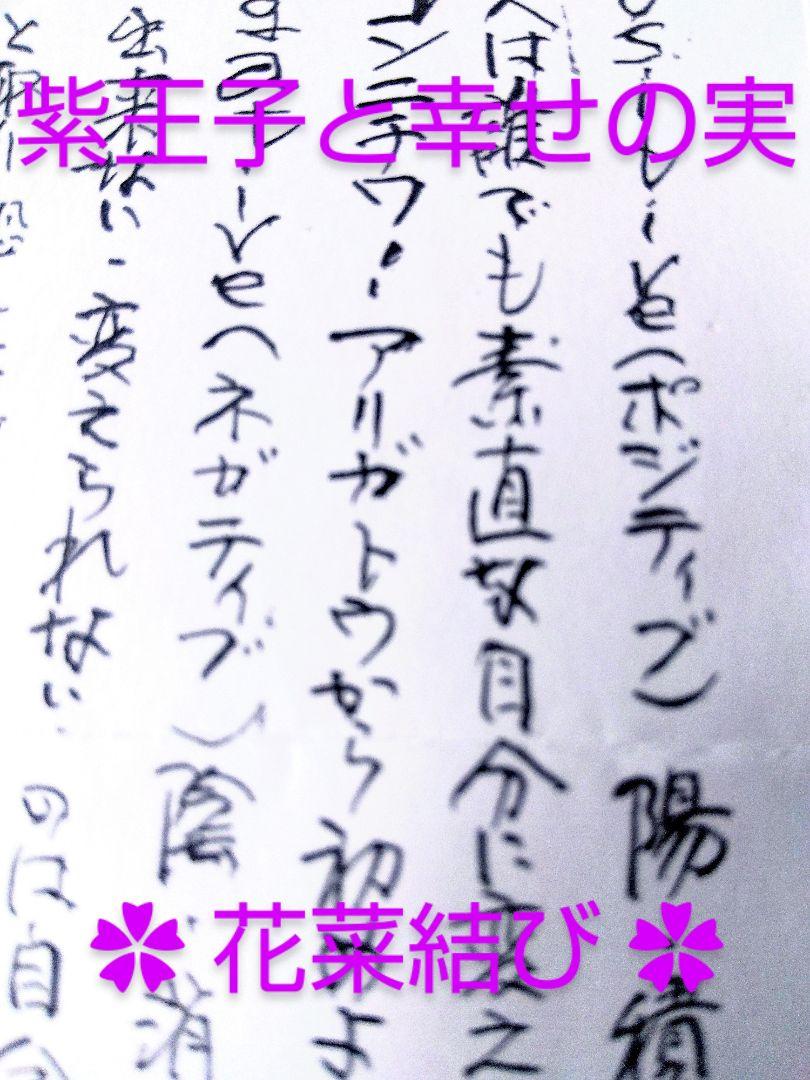 紫王子と幸せの実
(ポジティブ) 陽 積
は誰でも素直な自分に変え
ンニチワ!アリガトウから初めよ
(ネガティブ) 陰・消
出来ない・変えられない のは自分
と
✿ 花菜結び ✿